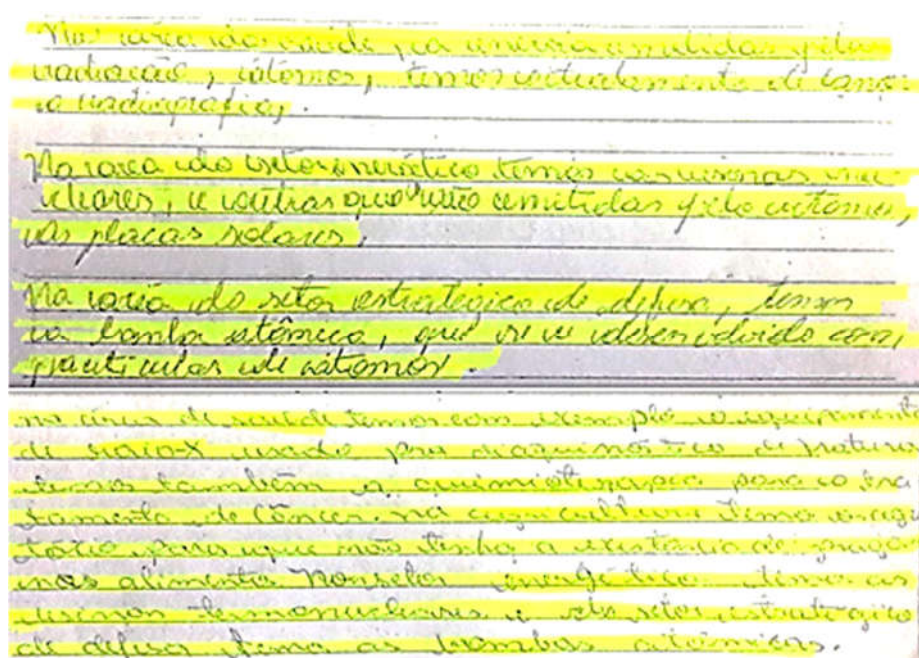 Na área da saúde, a energia emitidas pelas
radiação, átomos, temos tratamento de
a radiografias.
Na area do setor energético temos as usinas nu
cleares, e outras que são emitidas pelo átomos,
as placas solares.
Na area do setor estrategico de defesa, temos
a bomba atômica, que se é desenvolvido com
particulas de átomos.
na área de saúde temos com exemplo o equipamento
de raio-X usado pra diaguinóstico de fratura
temos também a quimioterapia para o tra
tamento de câncer na temos
para que não tenha a existencia de
nos alimento no setor energético temos as
usinas termonucleares e do setor estrategico
de defesa tema as bombas atômicas.